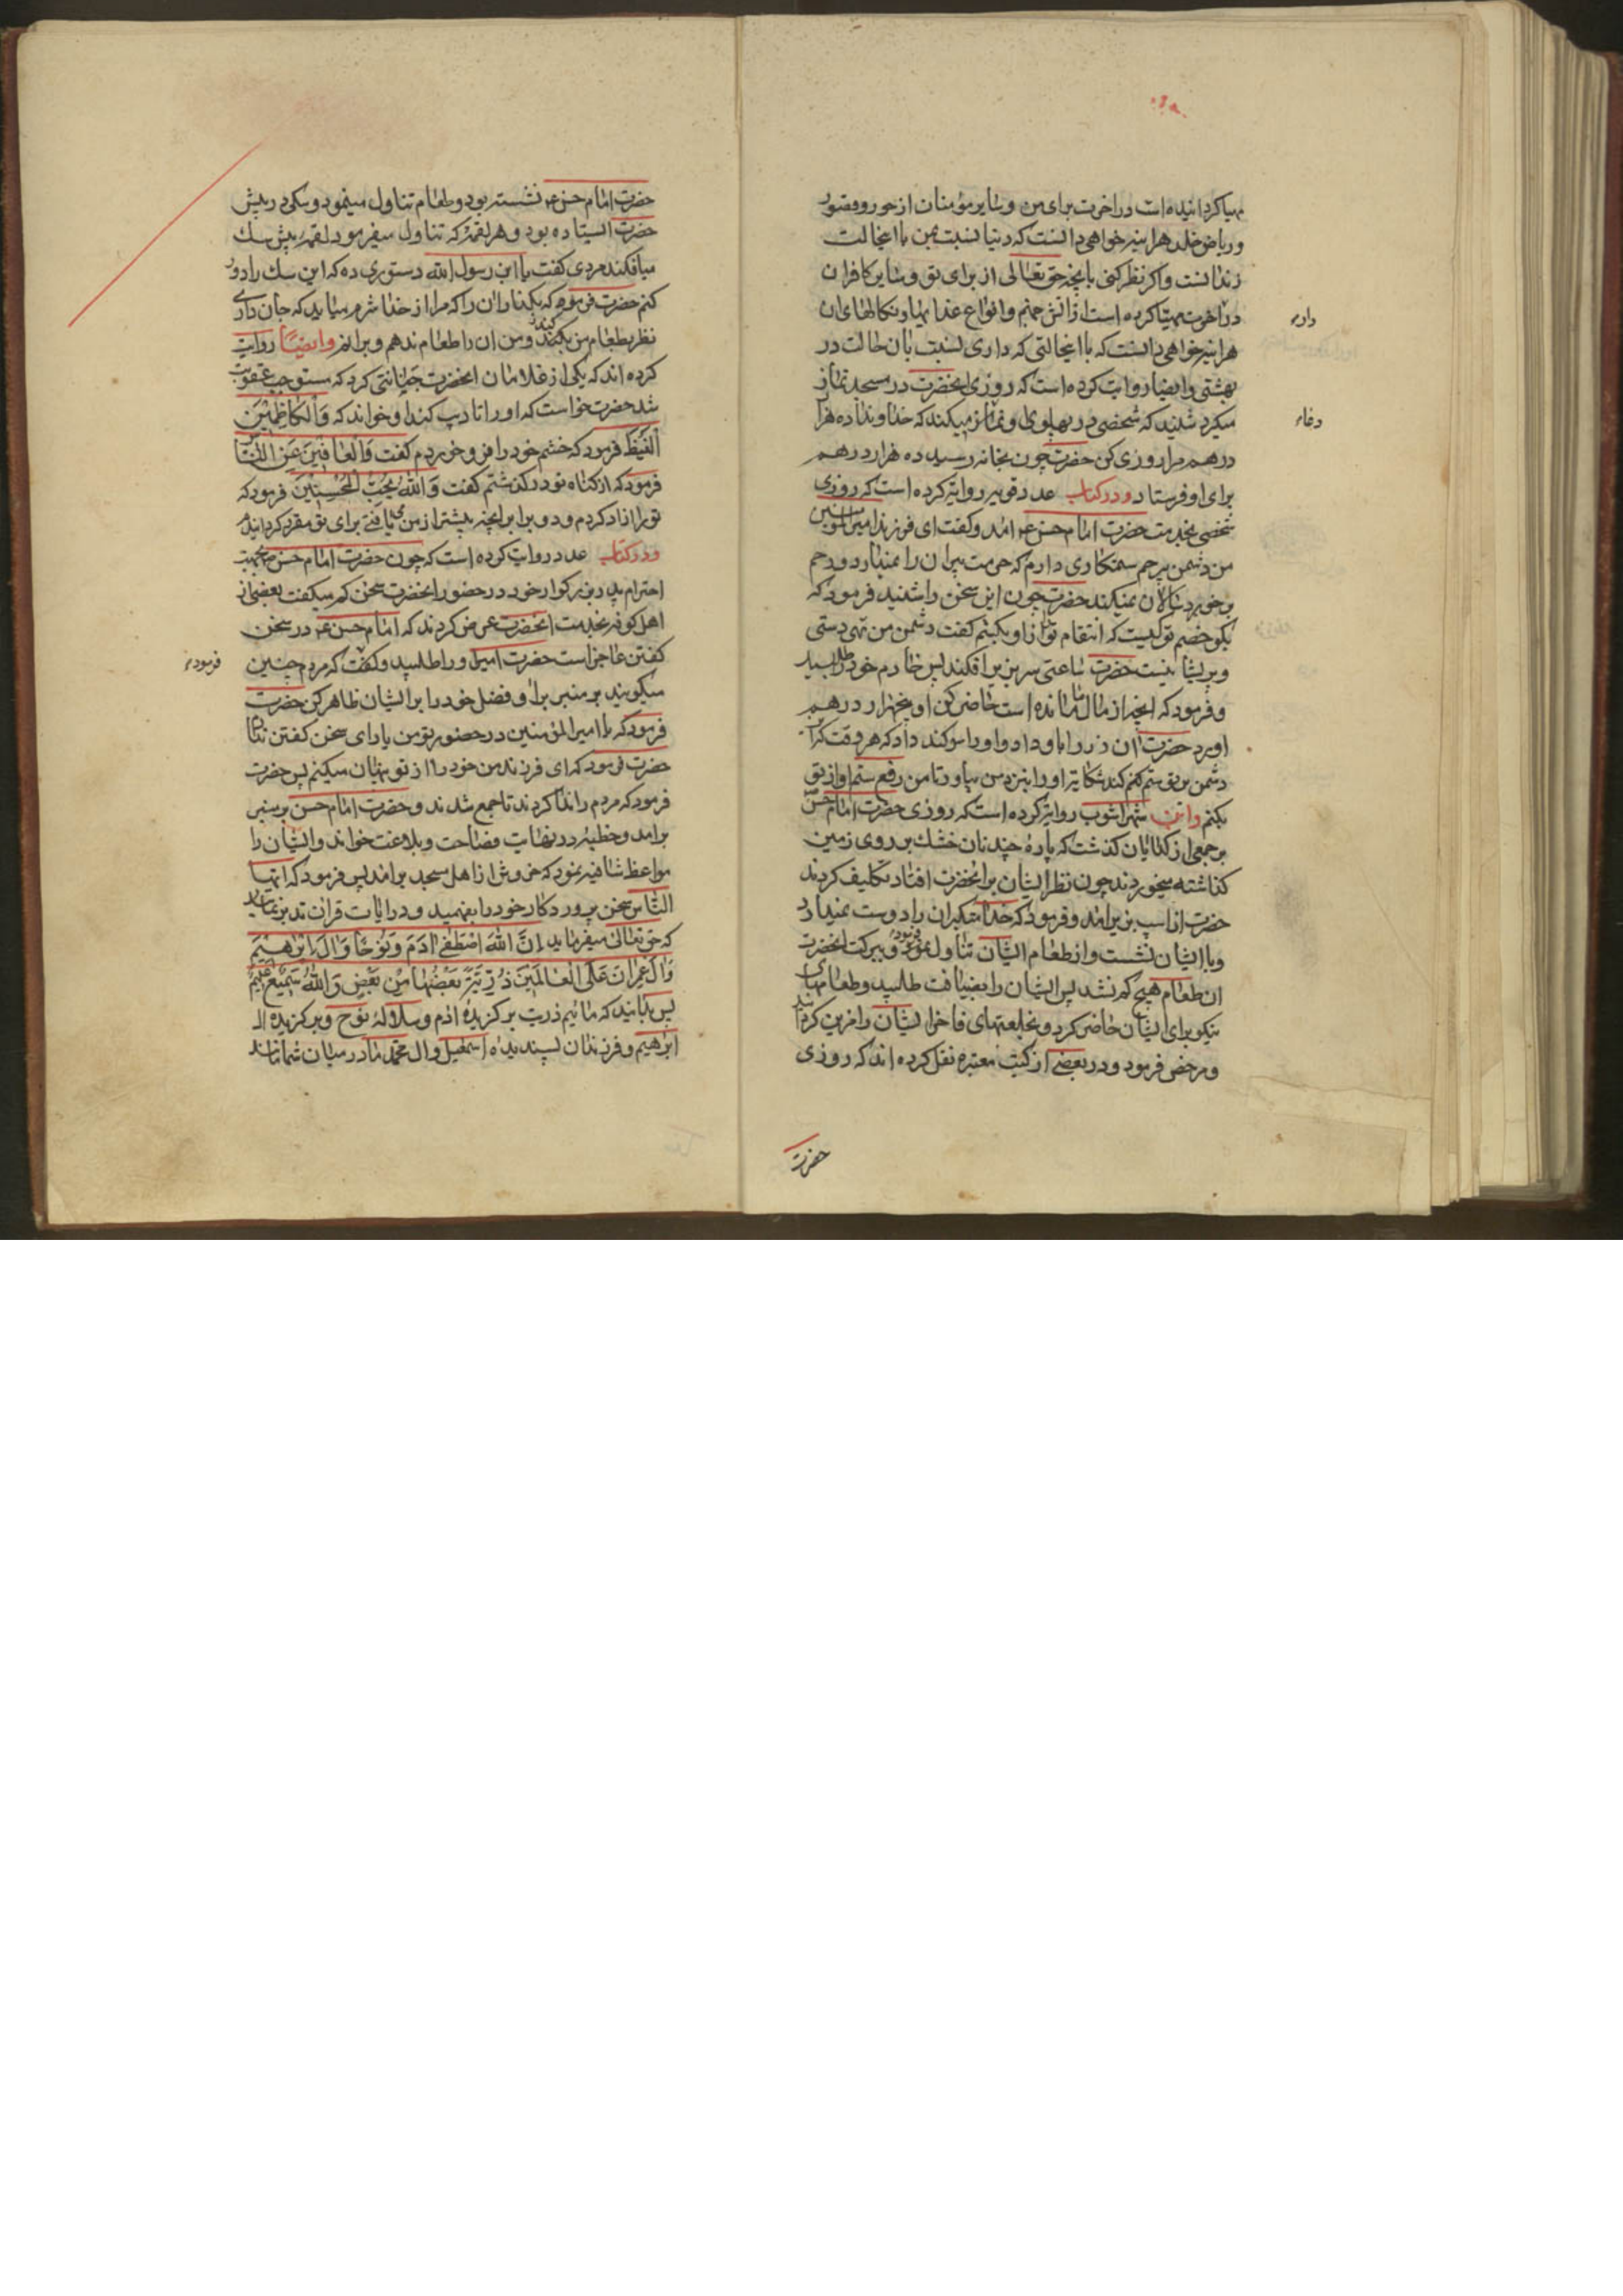 مهیا کردانیده است در اخرت برای من و سایر مؤمنان از حور و قصور
و ریاض خلد هراینه خواهی دانست که دنیا نسبت بمن با اینحالت
زندانست و اکر نظر کنی بانچه حق تعالی از برای تو و سایر کافران
در اخرت مهیا کرده است از اتش جهنم و انواع عذابها و نکالهای ان
هراینه خواهی دانست که با اینحالتی که داری نسبت بان حالت در
بهشتی و ایضا روایت کرده است که روزی انحضرت در مسجد نماز
میکرد شنید که شخصی در پهلوی او نماز میکند که خداوندا ده هزار
درهم مرا روزی کن حضرت چون بخانه رسید ده هزار درهم
برای او فرستاد و در کتاب عدد قویه روایة کرده است که روزی
شخصی بخدمت حضرت امام حسن ع امد و کفت ای فرزند امیرالمؤمنین
من دشمن بیرحم ستمکاری دارم که حرمت پیران را نمیدارد و رحم
بر خوردسالان نمیکند حضرت چون این سخن را شنید فرمود که
بکو خصم تو کیست که انتقام تو از او بکشم کفت دشمن من تهی دستی
و پریشانیست حضرت ساعتی سر بزیر افکند پس خادم خود را طلبید
و فرمود که انچه از مال ما مانده است حاضر کن او پنجهزار درهم
اورد حضرت ان زر را باو داد و او را سوکند داد که هر وقت که ان
دشمن بر تو ستم کند شکایة او را بنزد من بیاور تا من رفع ستم او از تو
بکنم و ابن شهراشوب روایة کرده است که روزی حضرت امام حسن
بر جمعی از کدایان کذشت که پارهٔ چند نان خشك بر روی زمین
کذاشته میخوردند چون نظر ایشان بر انحضرت افتاد تکلیف کردند
حضرت از اسب بزیر امد و فرمود که خدا متکبران را دوست نمیدارد
و با ایشان نشست و از طعام ایشان تناول فرمود و ببرکت انحضرت
ان طعام هیچ کم نشد پس ایشان را بضیافت طلبید و طعامهای
نیکو برای ایشان حاضر کرد و بخلعتهای فاخر ایشان را مزین کردانید
و مرخص فرمود و در بعضی از کتب معتبره نقل کرده اند که روزی
حضرت
حضرت امام حسن ع نشسته بود و طعام تناول مینمود و سکی در پیش
حضرت ایستاده بود و هر لقمهٔ که تناول میفرمود لقمهٔ پیش سك
میافکند مردی کفت یا ابن رسول الله دستوری ده که این سك را دور
کنم حضرت فرمود که بکذار ان را که مرا از خدا شرم میاید که جان داری
نظر بطعام من بکند و من ان را طعام ندهم و برانم و ایضاً روایت
کرده اند که یکی از غلامان انحضرت خیانتی کرد که مستوجب عقوبت
شد حضرت خواست که او را تادیب کند او خواند که وَالْكَاظِمِينَ
الْغَيْظَ فرمود که خشم خود را فرو خوردم کفت وَالْعَافِينَ عَنِ النَّاسِ
فرمود که از کناه تو در کذشتم کفت وَاللهُ يُحِبُّ الْمُحْسِنِينَ فرمود که
تو را ازاد کردم و دو برابر انچه پیشتر از من می یافتی برای تو مقرر کردانیدم
و در کتاب عدد روایت کرده است که چون حضرت امام حسن ع بجهت
احترام پدر بزرکوار خود در حضور انحضرت سخن کم میکفت بعضی از
اهل کوفه بخدمت انحضرت عرض کردند که امام حسن ع در سخن
کفتن عاجز است حضرت امیر او را طلبید و کفت که مردم چنین
فرمود
میکویند بر منبر برا و فضل خود را بر ایشان ظاهر کن حضرت
فرمود که یا امیرالمؤمنین در حضور تو من یارای سخن کفتن ندارم
حضرت فرمود که ای فرزند من خود را از تو پنهان میکنم پس حضرت
فرمود که مردم را ندا کردند تا جمع شدند و حضرت امام حسن بر منبر
برامد و خطبهٔ در نهایت فصاحت و بلاغت خواند و ایشان را
مواعظ شافیه نمود که خروش از اهل مسجد برامد پس فرمود که ایها
الناس سخن پروردکار خود را بفهمید و در ایات قران تدبر نمائید
که حق تعالی میفرماید إِنَّ اللهَ اصْطَفَىٰ آدَمَ وَنُوحًا وَآلَ إِبْرَاهِيمَ
وَآلَ عِمْرَانَ عَلَى الْعَالَمِينَ ذُرِّيَّةً بَعْضُهَا مِنْ بَعْضٍ وَاللهُ سَمِيعٌ عَلِيمٌ
پس بدانید که مائیم ذریت برکزیدهٔ ادم و سلالهٔ نوح و برکزیده ال
ابراهیم و فرزندان پسندیده اسمعیل و ال محمد ما در میان شما مانند